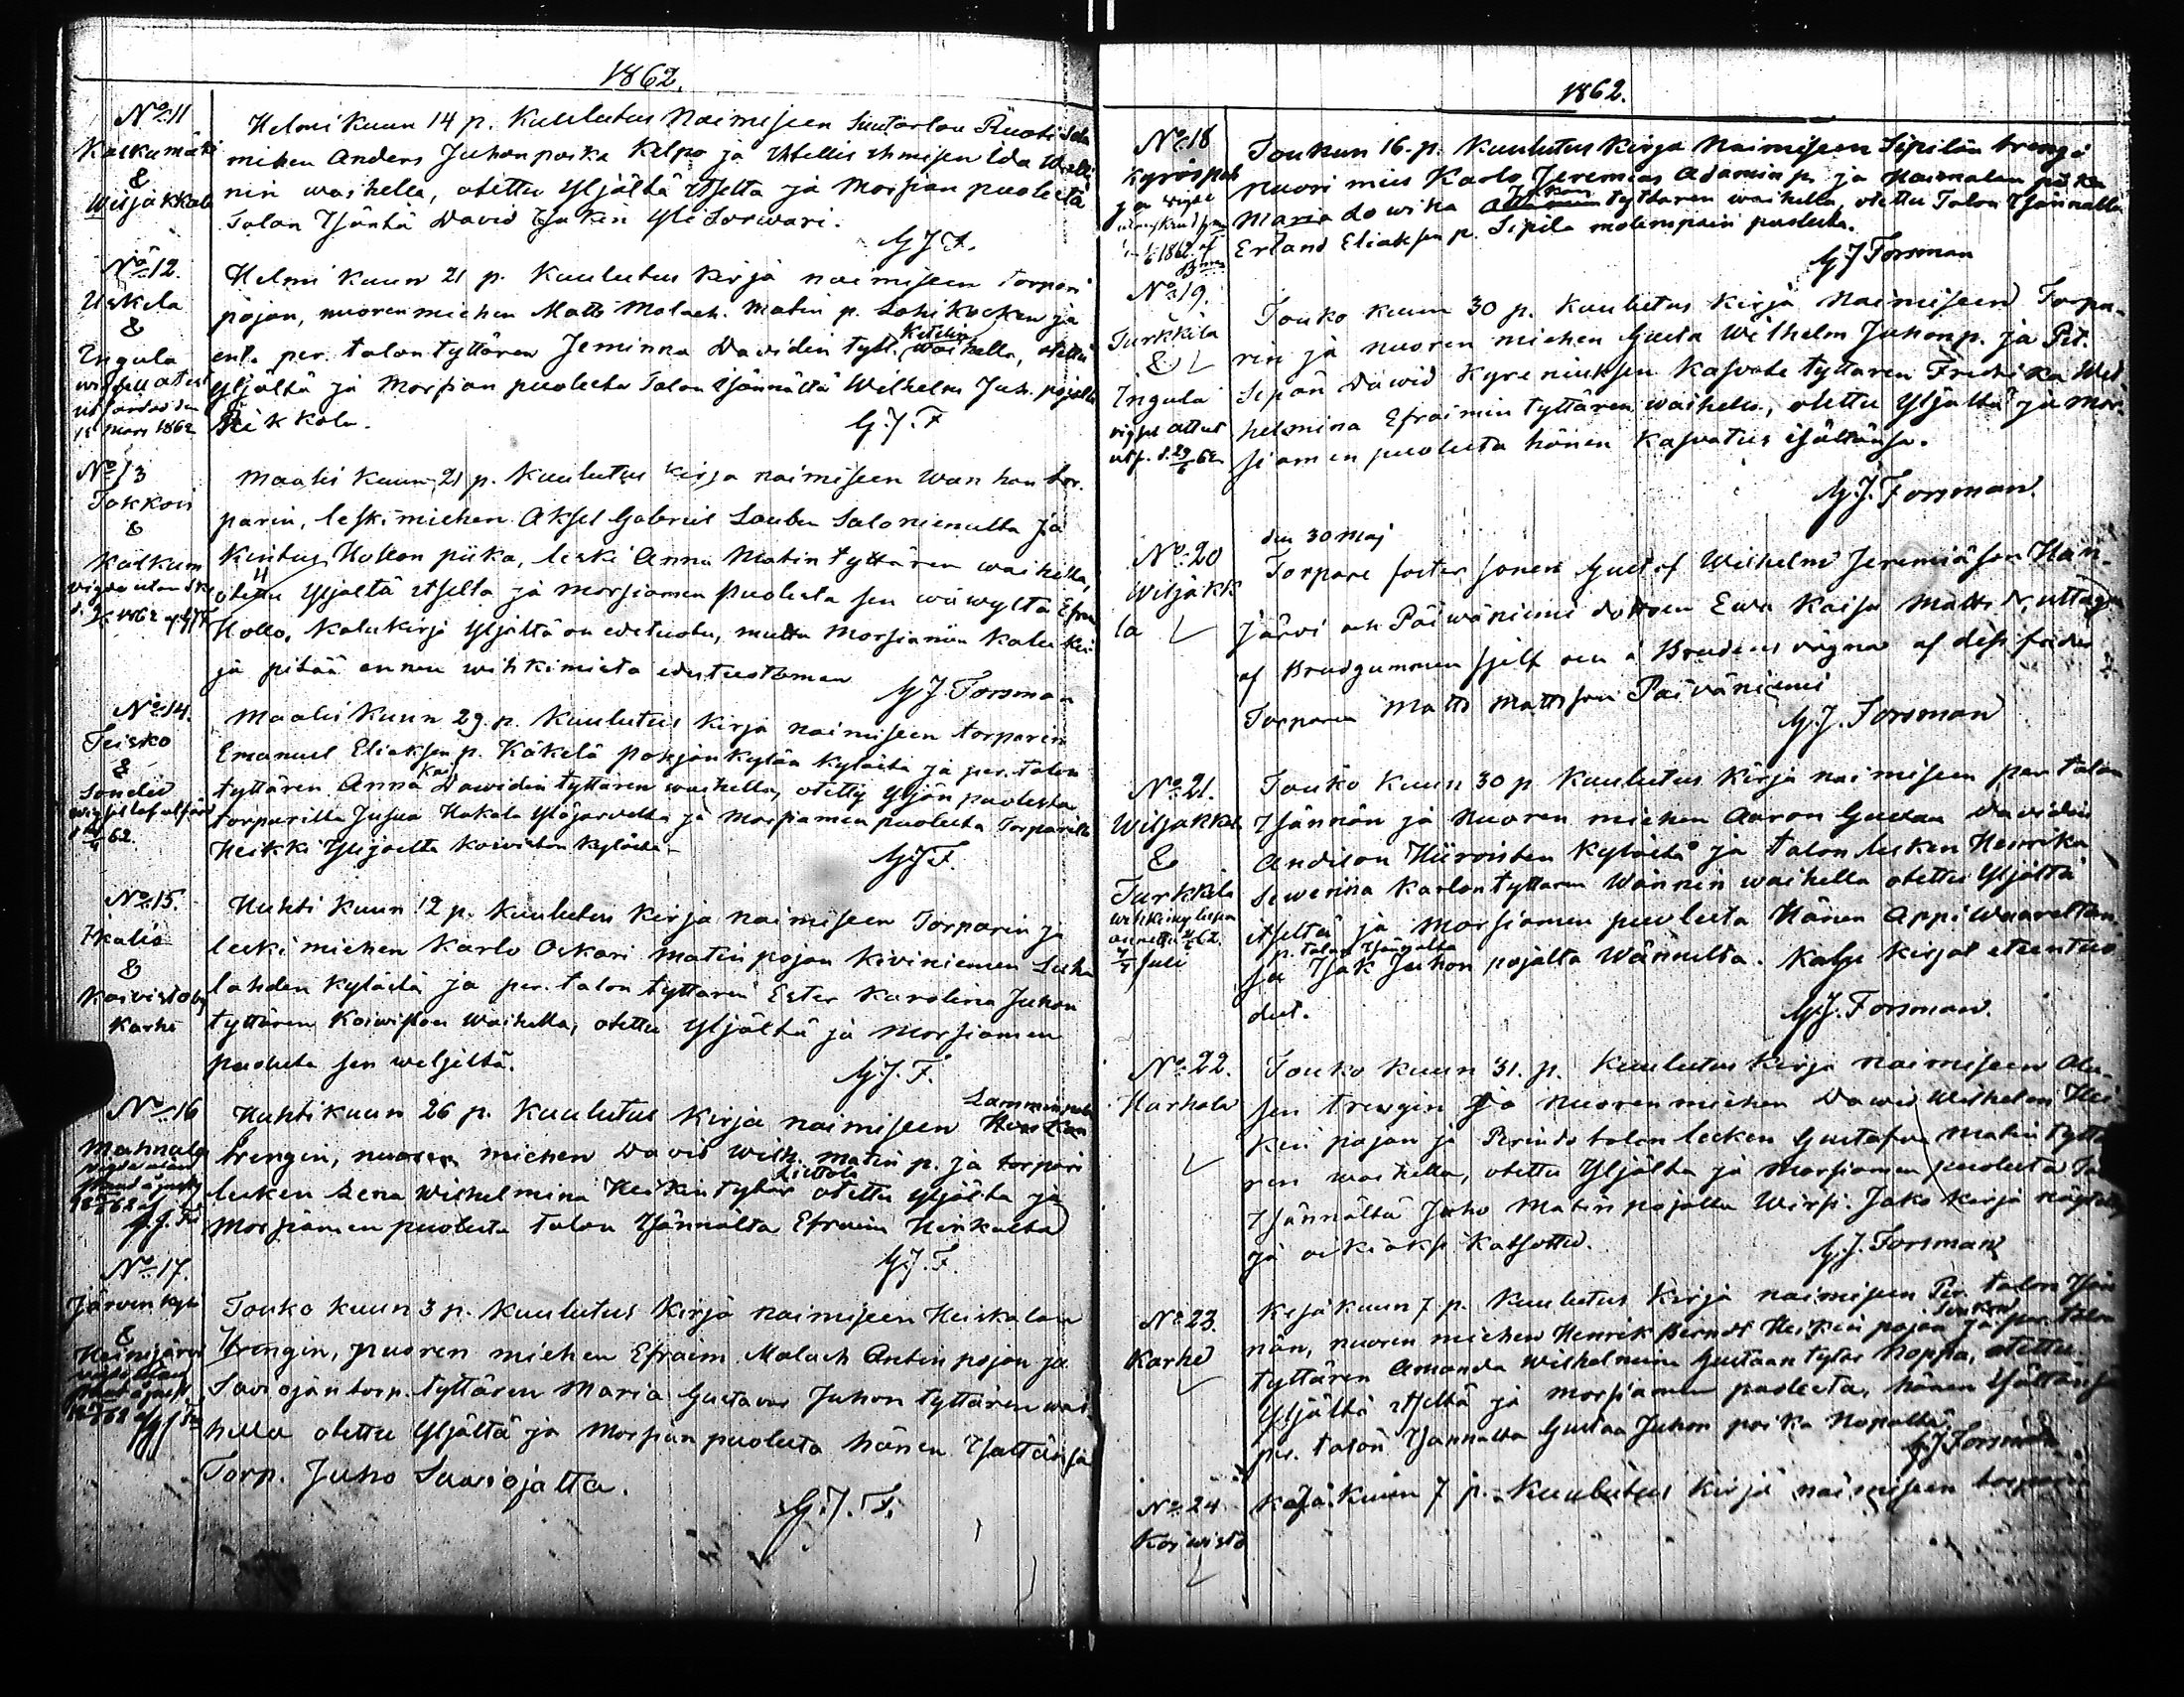 1862.
No 11
Kaskumäki
&
Wiljakkala
Helmi kuun 14 p. Kuulutus Naimiseen Suutarlan Ruoti Sota
miehen Anders Juhonpoika Kelpo ja Itsellis Ihmisen Ida
nin waihella, otettu Yljältä Itselta ja Morsian puolesta
Talon Isäntä David Isakin Yli Sorwari.
G J F.
No 12.
Uskela
&
Ingula
utfärdad den
15 Mars 1862
Helmi kuun 21 p. Kuulutus kirja naimiseen torpari
pojan, nuorenmiehen Matts Malach. Matin p. Lahikosken ja
ent. per. talon tyttären Jeminna Davidin tytt. Ketelin waihella, otettu
Yljältä ja Morsian puolesta Talon Isännältä Wilhelm Juh. pojalta
Pikkola.
G. J. F
No 13
Tokkoi
&
Kalkun
Maalis kuun 21 p. Kuulutus kirja naimiseen Wanhan tor-
parin, leskimiehen Aksel Gabriel Laubu Saloniemelta ja
Hollon piika, leski Anna Matin tyttären waihella,
otettu Yljältä itselta ja morsiamen puolesta sen wäwyltä Efra
Hollo, Kalukirja Yljältä on edestuotu, mutta Morsiamen kalu kir
ja pitää ennen wihkimistä edestuotaman
G J Forsman
No 14.
Teisko
&
62.
Maalis kuun 29 p. Kuulutus kirja naimiseen torparin
Emanuel Eliaksen p. Käkelä Pohjankylän kylästä ja per. talon
tyttären Anna Kai Dawidin tyttären waihella, otettu Yljän puolesta
torparilta Josua Hakala Ylöjärveltä ja Morsiamen puolesta Torparilta
Heikki Ylijoelta Koiviston kylästä-
G J F.
No 15.
Ikalis
&
Koivistoby
Karhe
Huhti kuun 12 p. Kuulutus kirja naimiseen Torparin ja
leskimiehen Karlo Oskari Matin pojan Kiviniemen Luha
lahden kylästä ja per. talon tyttären Ester Karolina Juhon
tyttären Koiwiston Waihella, otettu Yljältä ja Morsiamen
puolesta sen weljeltä.
G. J. F.
No 16
Mahnala
G. J. F
Huhtikuun 26 p. Kuulutus kirja naimiseen Lamminpään
trengin, nuoren miehen David Wilh. Matin p. ja torpari
lesken Lena Wilhelmina Heikin tytär Liettola otettu Yljältä ja
Morsiamen puolesta talon Isännältä Efraim Heiskalta
G. J. F.
No 17.
Järvenkylä
&
Heinijärvi
Touko kuun 3 p. Kuulutus kirja naimiseen Heiskalan
trengin, nuoren miehen Efraim Malach Antin pojan ja
Savi ojan torp. tyttären Maria Gustava Juhon tyttären wai
hella otettu Yljältä ja Morsian puolesta hänen Isältänsä
Torp. Juho Saviojalta.
G. J. F.
1862.
No 18
Kyröspoh
ja
1862
Toukuu 16. p. Kuulutus kirja Naimiseen Sipilän trengi
Nuori mies Karlo Jeremias Adamin p. ja Haemalan piika
Maria Lowisa tyttären waihella, otettu Talon Isännältä
Erland Eliaksen p. Sipila molempain puolesta.
G J Forsman
No 19.
Turkkila
&
Ingula
Touko kuun 30 p. Kuulutus kirja Naimiseen Torpa-
rin ja nuoren miehen Gusta Wilhelm Juhonp. ja Pit.
Sepän Dawid Kyreniuksen Kasvate tyttaren Fredrika Wil-
helmina Efraimin tyttären waihella, otettu Yljältä ja Mor-
siamen puolesta hänen Kasvatus isältänsä.
G. J. Forsman.
No 20
Wiljakk
la
den 30 Maj
Torpare foster sonen Gustaf Wilhelm Jeremiason Han-
järvi och Päiwäniemi dottren Ewa Kaisa Matts dr, uttagen
af Brudgummen sjelf och å Brudens vägnar af dess fader
Torparen Matts Mattsson Paivaniemi
G. J. Forsman
No 21.
Wiljakkala
&
Turkkila
Juli
Touko kuun 30 p Kuulutus kirja naimiseen per talon
Isännän ja Nuoren miehen Aaron Gustaa Davidin
Andilan Hiiroisten kylästä ja talon lesken Henrika
Sewerina Karlon tyttaren Wännin waihella otettu Yljältä
itseltä ja Morsiamen puolesta Hänen Appi Waareltan-
sa p. talon Isännältä Isak Juhon pojalta Wänneltä. Kalu kirjat eteentuo-
dut.
G. J. Forsman.
No 22.
Harhala
Touko kuun 31. p. Kuulutus kirja naimiseen
sen trengin ja nuoren miehen Dawid Wilhelm Hei
kin pojan ja Perindö talon lesken Gustafva Matin tyttä
ren waihella, otettu Yljältä ja Morsiamen puolesta Ta
Isännältä Juho Matin pojalta Wirsi. Jako kirja näytetty
ja oikiaksi Katsottu.
G. J. Forsman
No 23.
Karhe
Kesäkuun 7 p. Kuulutus kirja naimiseen Per. talon Isän
nän, nuoren miehen Henrik Berndt Heikin pojan ja per. talon
tyttären Amanda Wilhelmina Gustaan tytär Noppa, otettu
Yljältä itseltä ja Morsiamen puolesta, hänen Isältänsä
per. talon Isannalta Gustaa Juhon poika Nopalta,
G. J. Forsman
No 24
Koiwisto
Kesä kuun 7 p. Kuulutus kirja naimiseen torparin